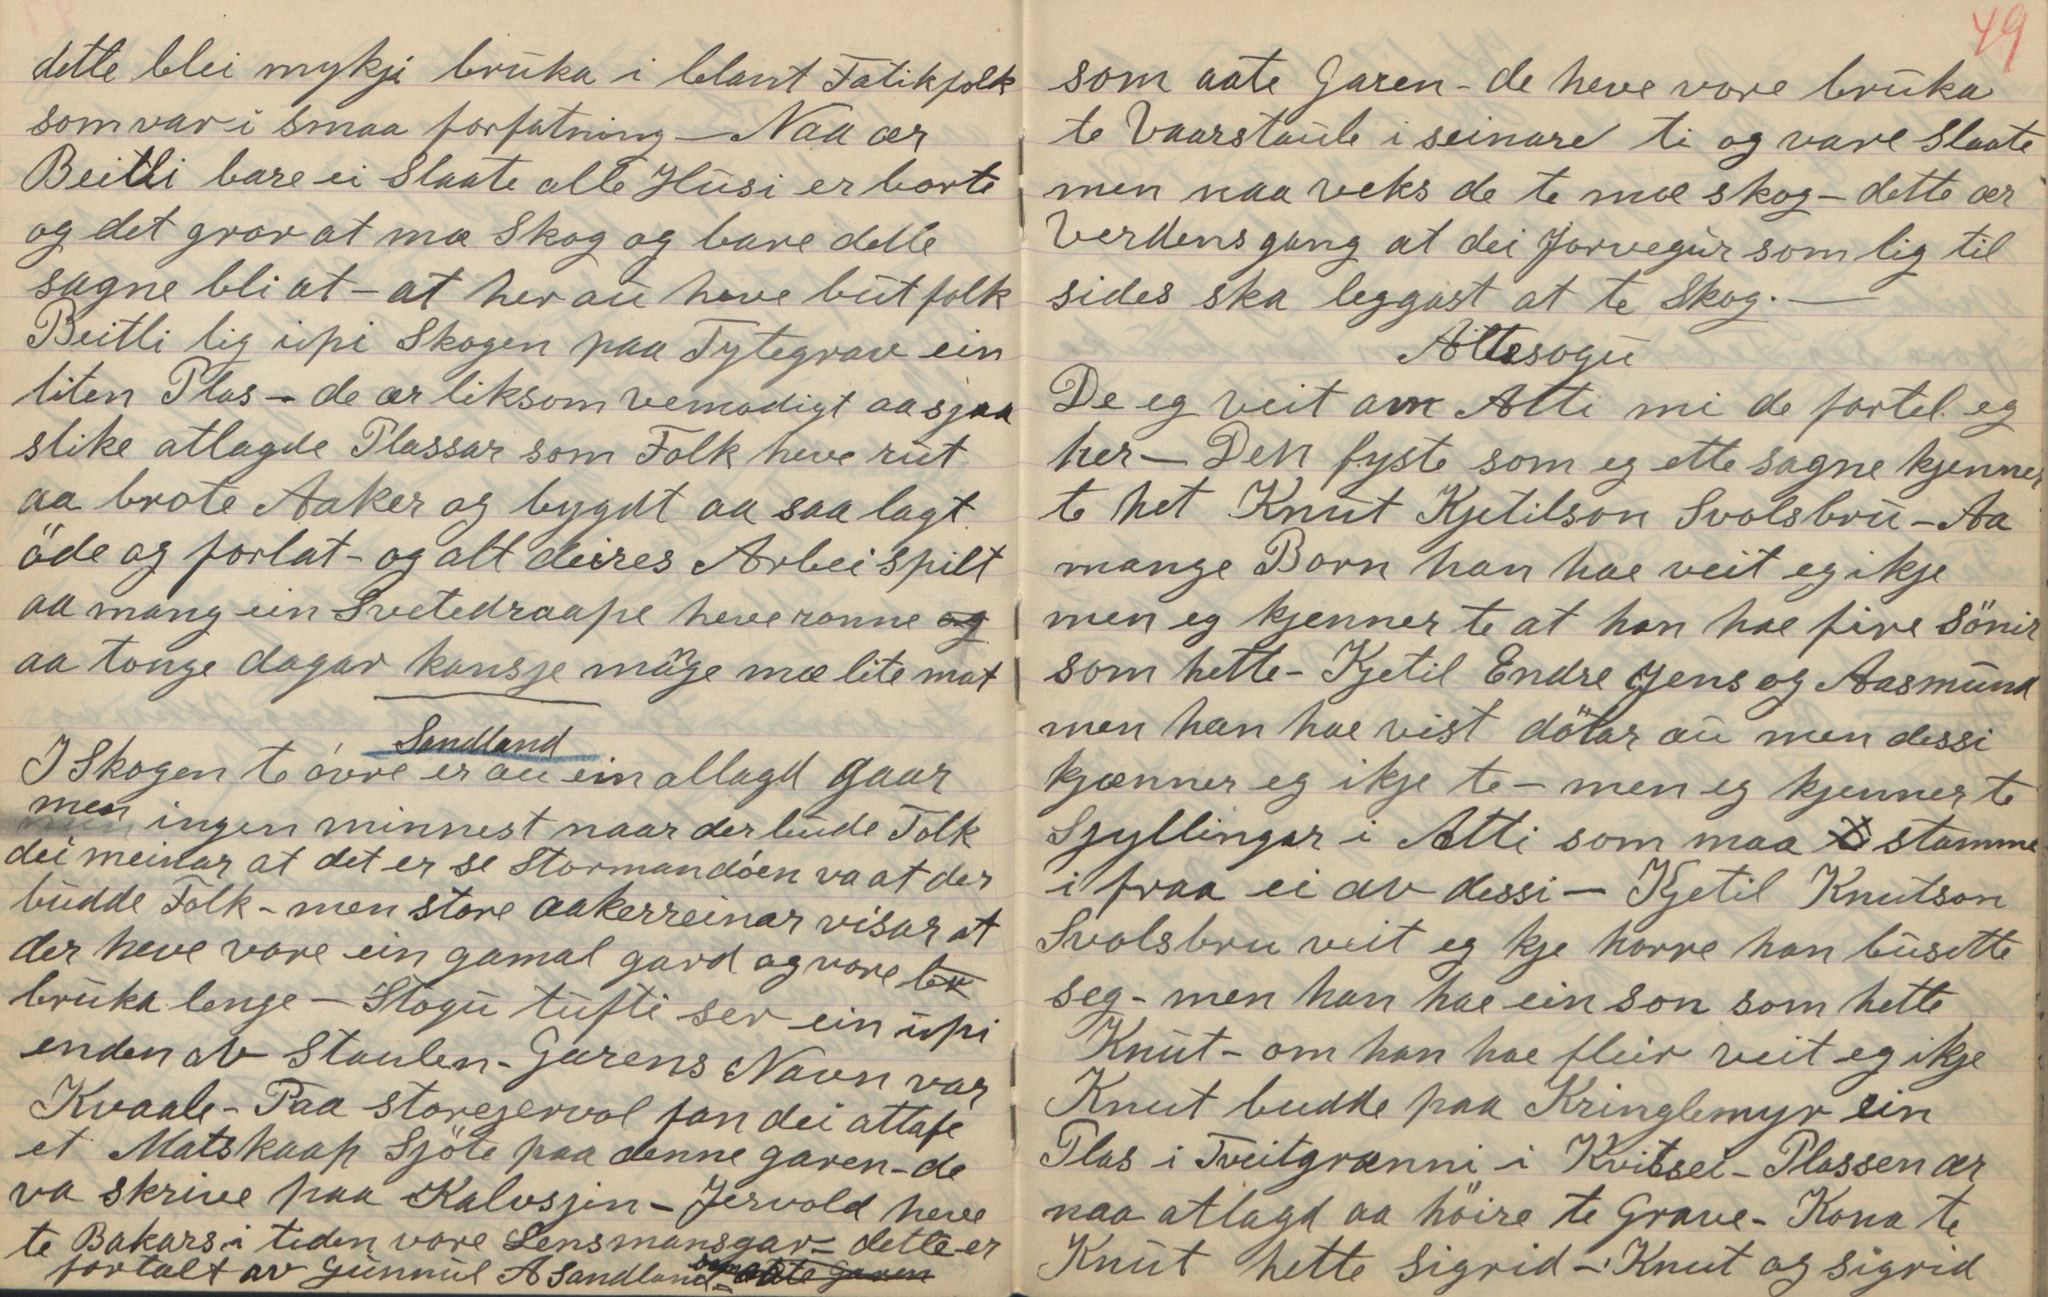 dette blei mykji brūka i blant Fatikfolk
som var i smaa forfatning — Naa ær
Beitli bare ei Slaate alle Hūsi er borte
og det gror at mæ Skog og bare dette
sagne bli at — at her aū heve būt folk
Beitli lig ūpi Skogen paa Tytegrav ein
liten Plas — de ær liksom vemodigt aa sjaa
slike atlagde Plassar som Folk heve rūt
aa brote Aaker og bygdt aa saa lagt
öde og forlat — og alt deires Arbei spilt
aa mang ein Svetedraape heve ronne og
aa tonge dagar kansje mange mæ lite mat
Sandland
I Skogen te óvre er aū ein atlagd gaar
men ingen minnest naar der būde Folk
dei meinar at det er se Stormandóen va at der
būdde Folk — men store aakerreinar visar at
der heve vore ein gamal gard og vore
brūka lenge — Stogū tūfti ser ein ūpi
enden av Staulen — Garens Navn var
Kvaale — Paa storejervol fan dei attafe
et Matskaap Sjöte paa denne garen — de
va skrive paa Kalvsjin — Jervold heve
te Bakars i tiden vore Lensmansgar — dette er
fortalt av Gūnnūl A Sandland — som aate Garen
49
som aate Garen — de heve vore brūka
te Vaarstaūle i seinare ti og vare Slaate
men naa veks de te mæ skog — dette ær
Verdensgang at dei Jorvegūr som lig til
sides ska leggast at te Skog. —
Attesogū
De eg veit am Atti mi de fortel. eg
her — Den fyste som eg ette sagne kjenner
te het Knūt Kjetilson Svolsbrū — Aa
mange Born han hae veit eg ikje
men eg kjenner te at han hae fire sönir
som hette — Kjetil Endre Jens og Aasmūnd
men han hae vist dötar aū men dessi
kjænner eg ikje te — men eg kjenner te
Sjyllingar i Atti som maa stamme
i fraa ei av dessi — Kjetil Knutson
Svolsbru veit eg kje horre han būsette
seg — men han hae ein son som hette
Knūt — om han hae fleir veit eg ikje
Knūt budde paa Kringlemyr ein
Plas i Tveitgrænni i Kvitsei — Plassen ær
naa atlagd aa höire te Grave — Kona te
Knūt hette Sigrid — Knut og sigrid